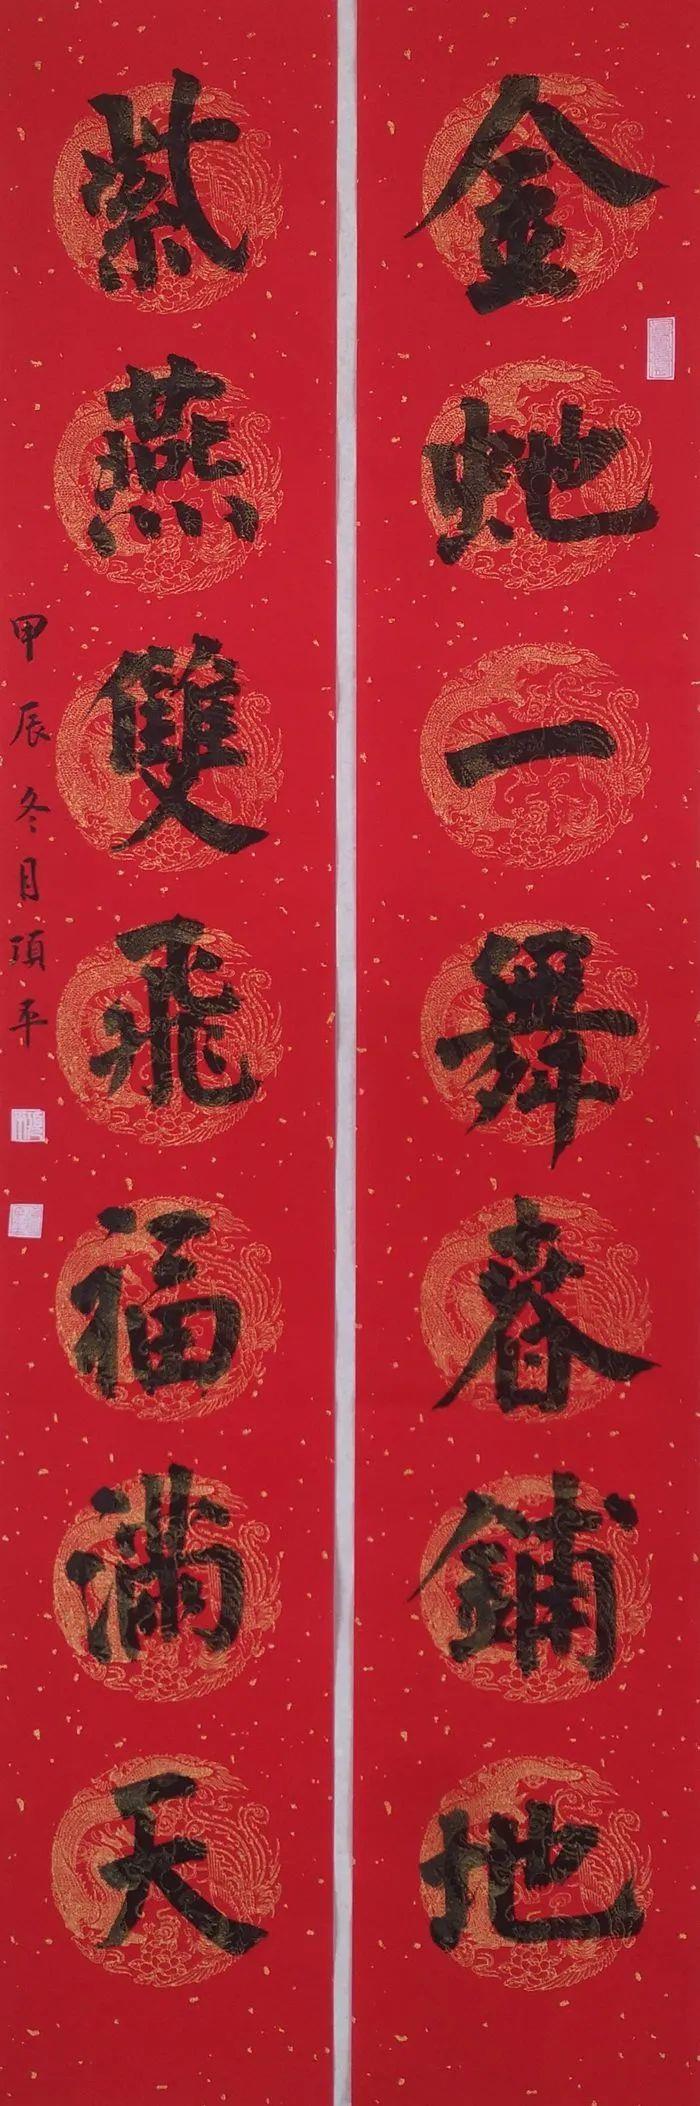 金蛇一舞春鋪地
紫燕雙飛福滿天
甲辰冬月項平